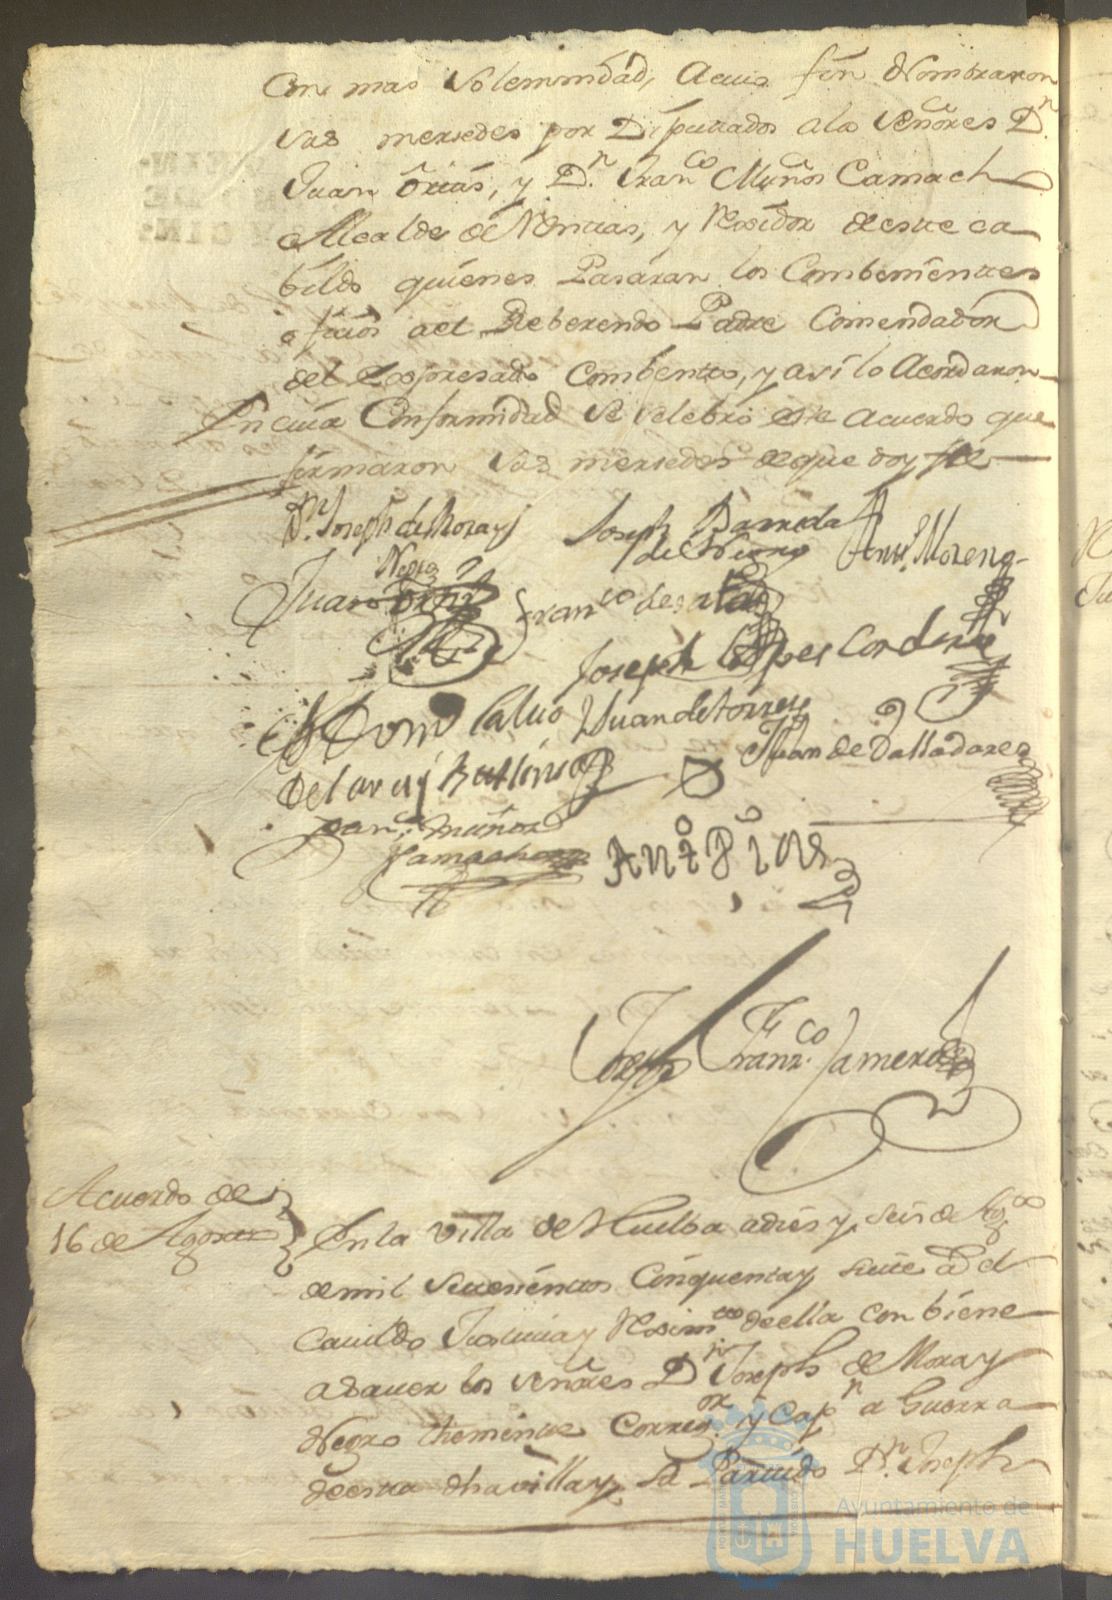 Con mas Solemnidad, Acuio fin Nombraron
sus mersedes por Diputados a los Señores Dn.
Juan Ortis, y Dn. Franco Muños Camacho
Alcalde de Rentas, y Rexidor deste ca
bildo quienes Pasaran los Combenientes
oficios a el Reberendo Padre Comendador
del Expresado Combento, y asi lo Acordaron
En cuia Conformidad se selebró este Acuerdo que
firmaron sus mersedes de que doy fee
Dn. Joseph de Mora y
Negro
Joseph Barreda
Anto. Moreno
Juan Ortiz
Franco de
Joseph Lopez
Domo Calvo
Juan de Torres
Juan de Valladares
Franco Muñoz
Camacho
Anto Pinos
Joseph Franzco. Jamero
Acuerdo de
16 de Agosto
En la Villa de Huelba a dies y seis de Agto
de mil setesientos Cinquenta y siete a. el
Cavildo Justicia y Reximto de ella conbiene
a saver los Señores Dn Joseph de Mora y
Negro theniente Corregor. y Capn a Guerra
de esta dha villa y su Partido Dn. Joseph
Ayuntamiento de
HUELVA